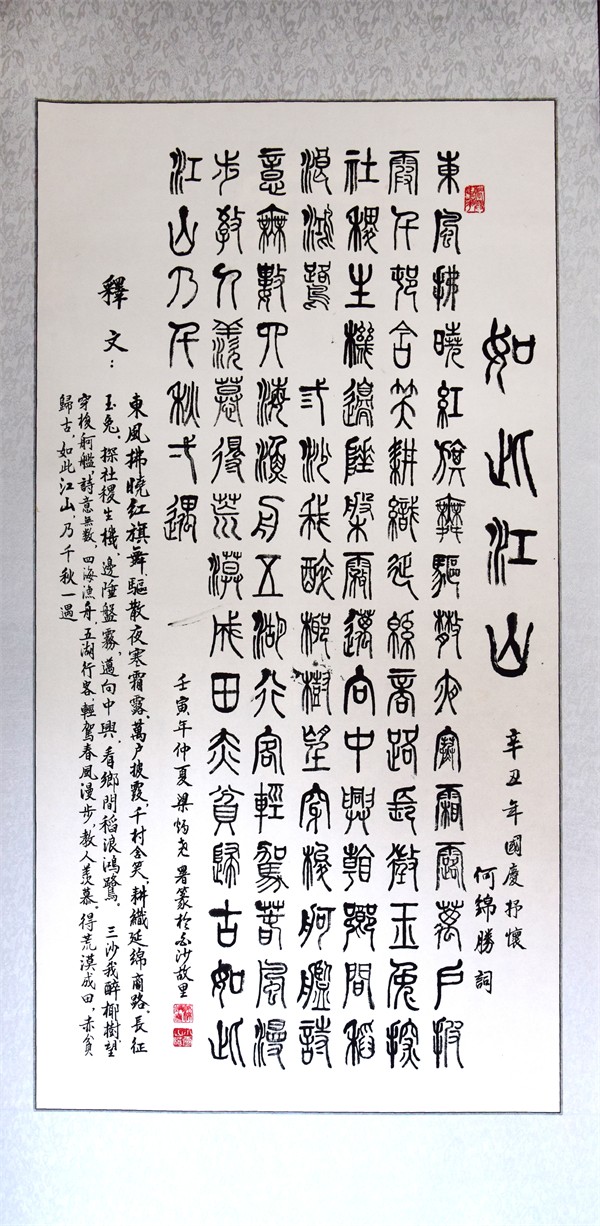 如此江山
辛丑年國慶抒懷
何錦勝詞
東風拂曉紅旗舞驅散夜寒霜露萬戶披
霞千邨含笑耕織延緜商路長徵玉兔探
社稷生機邊陲盤霧邁向中興看鄉間稻
浪鴻鷺 三沙我醉椰樹望穿梭舸艦詩
意無數四海漁舟五湖行客輕駕春風漫
步教人羨慕得荒漠成田赤貧歸古如此
江山乃千秋一遇
壬寅年仲夏梁灼堯署篆於白沙故里
釋文：
東風拂曉紅旗舞，驅散夜寒霜露、萬戶披霞、千村含笑、耕織延綿商路、長征
玉兔、探社稷生機、邊陲盤霧，邁向中興、看鄉間稻浪鴻鷺、 三沙我醉椰樹、望
穿梭舸艦、詩意無數、四海漁舟、五湖行客、輕駕春風漫步，教人羨慕、得荒漠成田，赤貧
歸古、如此江山，乃千秋一遇